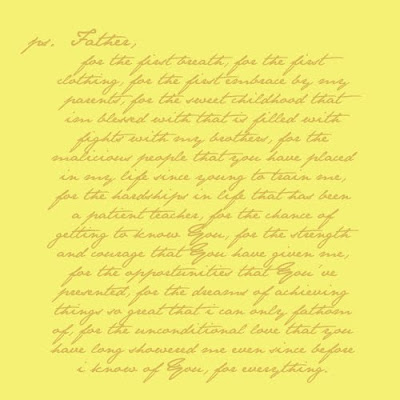 ps. Father,
for the first breath, for the first
clothing, for the first embrace by my
parents, for the sweet childhood that
im blessed with that is filled with
fights with my brothers, for the
malicious people that you have placed
in my life since young to train me,
for the hardships in life that has been
a patient teacher, for the chance of
getting to know You, for the strength
and courage that You have given me,
for the opportunities that You've
presented, for the dreams of achieving
things so great that i can only fathom
of, for the unconditional love that you
have long showered me even since before
i know of You, for everything.